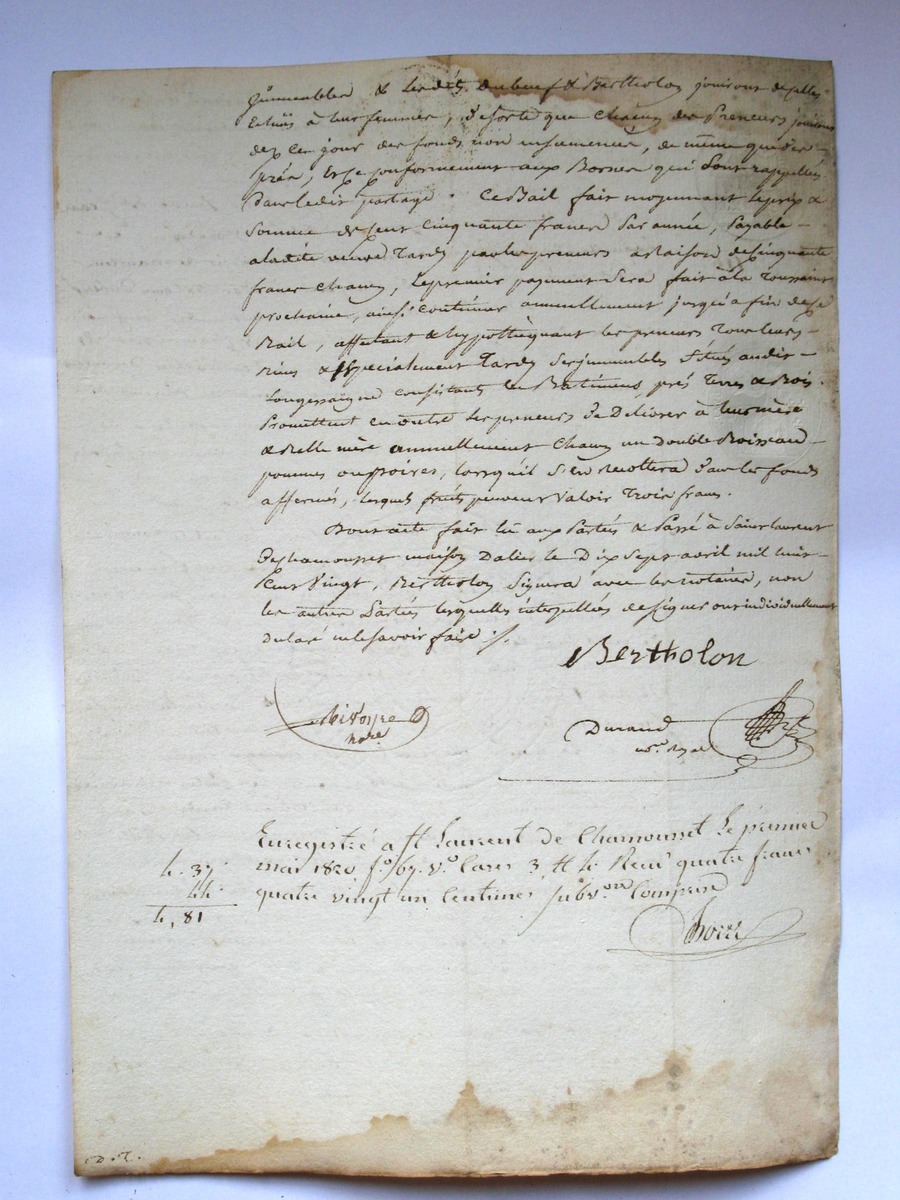 jmmeubles & lesdits Dubeuf & Bertholon jouiront de celles
Echues à leurs femmes, de sorte que chacun des Preneurs jouira
dez ce jour des fonds non ensemencés, de même que des
prés, le conformement aux Bornes qui sont rappellés
dans ledit partage. Ce Bail fait moyennant le prix &
somme de cent cinquante francs par année, payable
a ladite veuve Tardy par les preneurs a Raison de cinquante
francs chacun, le premier payement sera fait à la Toussaint
prochaine, ainsi continuer annuellement jusqu'a fin de ce
Bail, affectant & hypottéquant les preneurs tous leurs
biens & Specialement Tardy ses jmmeubles situés audit
Longessaigne consistants en Batiments, prés Terres & Bois.
Promettent en outre les preneurs de Délivrer à leur mère
& Belle mère annuellement chacun un double Boisseau
pommes ou poires, lorsquil s'en recoltera dans les fonds
affermés, lesquels fruits peuvent valoir trois francs.
Dont acte fait lu aux Parties & Passé à Saint Laurent
De chamousset maison Dalier le Dix Sept avril mil huit
Cent Vingt, Bertholon Signera avec les notaires, non
les autres Parties lesquelles interpellées de signer ont individuellement
déclaré ne le savoir faire ./.
Bertholon
nore
Durand
nore. Royal
Enregistré a St Laurent de Chamousset le premier
mai 1820 fo. 67. Vo. Cases 3, et 4 Reçu quatre francs
quatre vingt un centimes subvon Comprise
4. 37
44.
4, 81
D. T.